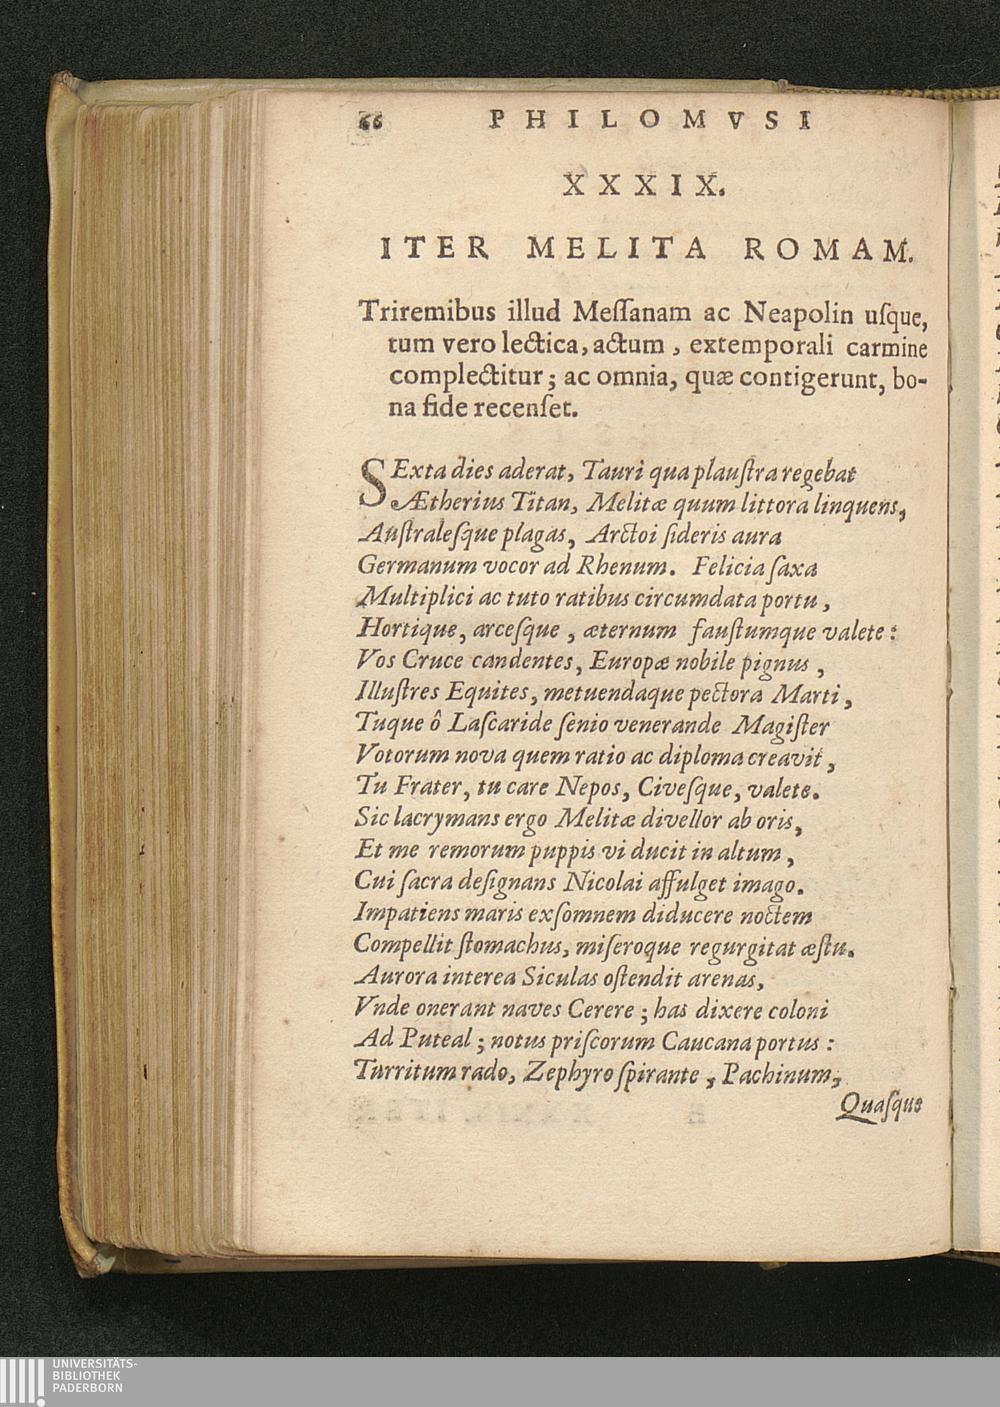 66 PHILOMVSI
XXXIX.
ITER MELITA ROMAM.
Triremibus illud Meſſanam ac Neapolin uſque,
tum vero lectica, actum, extemporali carmine
complectitur; ac omnia, quæ contigerunt, bo-
na fide recenſet.
SExta dies aderat, Tauri qua plauſtra regebat
Ætherius Titan, Melitæ quum littora linquens,
Auſtraleſque plagas, Arctoi ſideris aura
Germanum vocor ad Rhenum. Felicia ſaxa
Multiplici ac tuto ratibus circumdata portu,
Hortique, arceſque, æternum fauſtumque valete:
Vos Cruce candentes, Europæ nobile pignus,
Illuſtres Equites, metuendaque pectora Marti,
Tuque ô Laſcaride ſenio venerande Magiſter
Votorum nova quem ratio ac diploma creavit,
Tu Frater, tu care Nepos, Civeſque, valete.
Sic lacrymans ergo Melitæ divellor ab oris,
Et me remorum puppis vi ducit in altum,
Cui ſacra deſignans Nicolai affulget imago.
Impatiens maris exſomnem diducere noctem
Compellit ſtomachus, miſeroque regurgitat æſtu.
Aurora interea Siculas oſtendit arenas,
Vnde onerant naves Cerere; has dixere coloni
Ad Puteal; notus priſcorum Caucana portus:
Turritum rado, Zephyro ſpirante, Pachinum,
Quaſque
UNIVERSITÄTS-
BIBLIOTHEK
PADERBORN